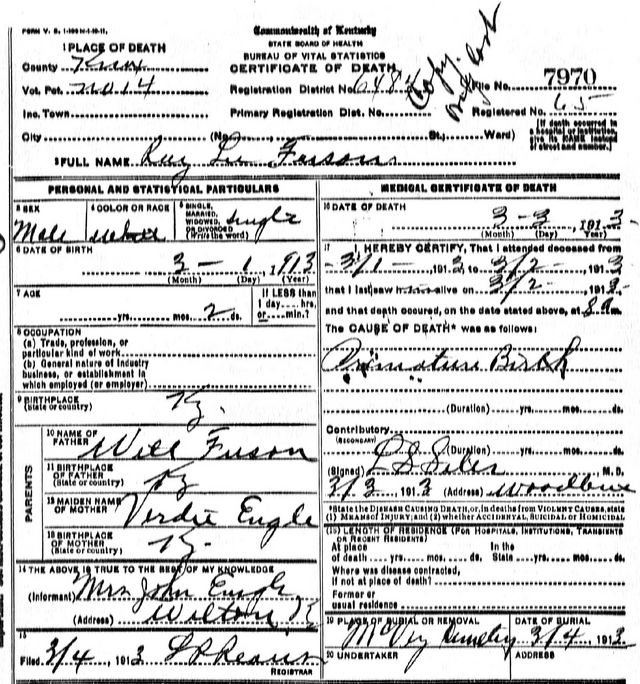 FORM V. S. 1-
Commonwealth of Kentucky
STATE BOARD OF HEALTH
BUREAU OF VITAL STATISTICS
CERTIFICATE OF DEATH
1 PLACE OF DEATH
County Knox
Vot. Pct. No 14
Inc. Town
City (No. St., Ward)
Registration District No. 
Primary Registration Dist. No.
Copy
File No. 7970
Registered No. 65
[If death occurred in a hospital or institution, give its NAME instead of street and number.]
2 FULL NAME Ray Fuson
PERSONAL AND STATISTICAL PARTICULARS
3 SEX Male
4 COLOR OR RACE White
5 SINGLE, MARRIED, WIDOWED, OR DIVORCED (Write the word) Single
6 DATE OF BIRTH
3 - 1, 1913
(Month) (Day) (Year)
7 AGE
yrs. mos. 2 ds.
If LESS than
1 day----hrs.
or----min.?
8 OCCUPATION
(a) Trade, profession, or
particular kind of work
(b) General nature of industry
business, or establishment in
which employed (or employer)
9 BIRTHPLACE
(State or country) Ky.
PARENTS
10 NAME OF FATHER Will Fuson
11 BIRTHPLACE OF FATHER (State or country) Ky
12 MAIDEN NAME OF MOTHER Verdie Engle
13 BIRTHPLACE OF MOTHER (State or country) Ky.
14 THE ABOVE IS TRUE TO THE BEST OF MY KNOWLEDGE
(Informant) Mrs John Engle
(Address) Wilton Ky
15
Filed 3/4, 1913
REGISTRAR
MEDICAL CERTIFICATE OF DEATH
16 DATE OF DEATH
3-3, 1913
(Month) (Day) (Year)
17 I, HEREBY CERTIFY, That I attended deceased from
3/1-, 1913, to 3/2-, 1913
that I last saw him alive on 3/2-, 1913
and that death occured, on the date stated above, at 8 a m.
The CAUSE OF DEATH* was as follows:
Premature Birth
(Duration) yrs. mos. ds.
Contributory
(SECONDARY)
(Duration) yrs. mos. ds.
(Signed) L S Siler M. D.
3/3, 1913 (Address) Woodbine
*State the DISEASE CAUSING DEATH, or, in deaths from VIOLENT CAUSES, state
(1) MEANS of INJURY; and (2) whether ACCIDENTAL, SUICIDAL or HOMICIDAL
LENGTH OF RESIDENCE (FOR HOSPITALS, INSTITUTIONS, TRANSIENTS OR RECENT RESIDENTS)
At place In the
of death yrs. mos. ds. State yrs. mos. ds.
Where was disease contracted,
if not at place of death?
Former or
usual residence
19 PLACE OF BURIAL OR REMOVAL DATE OF BURIAL
3/4, 1913
20 UNDERTAKER ADDRESS